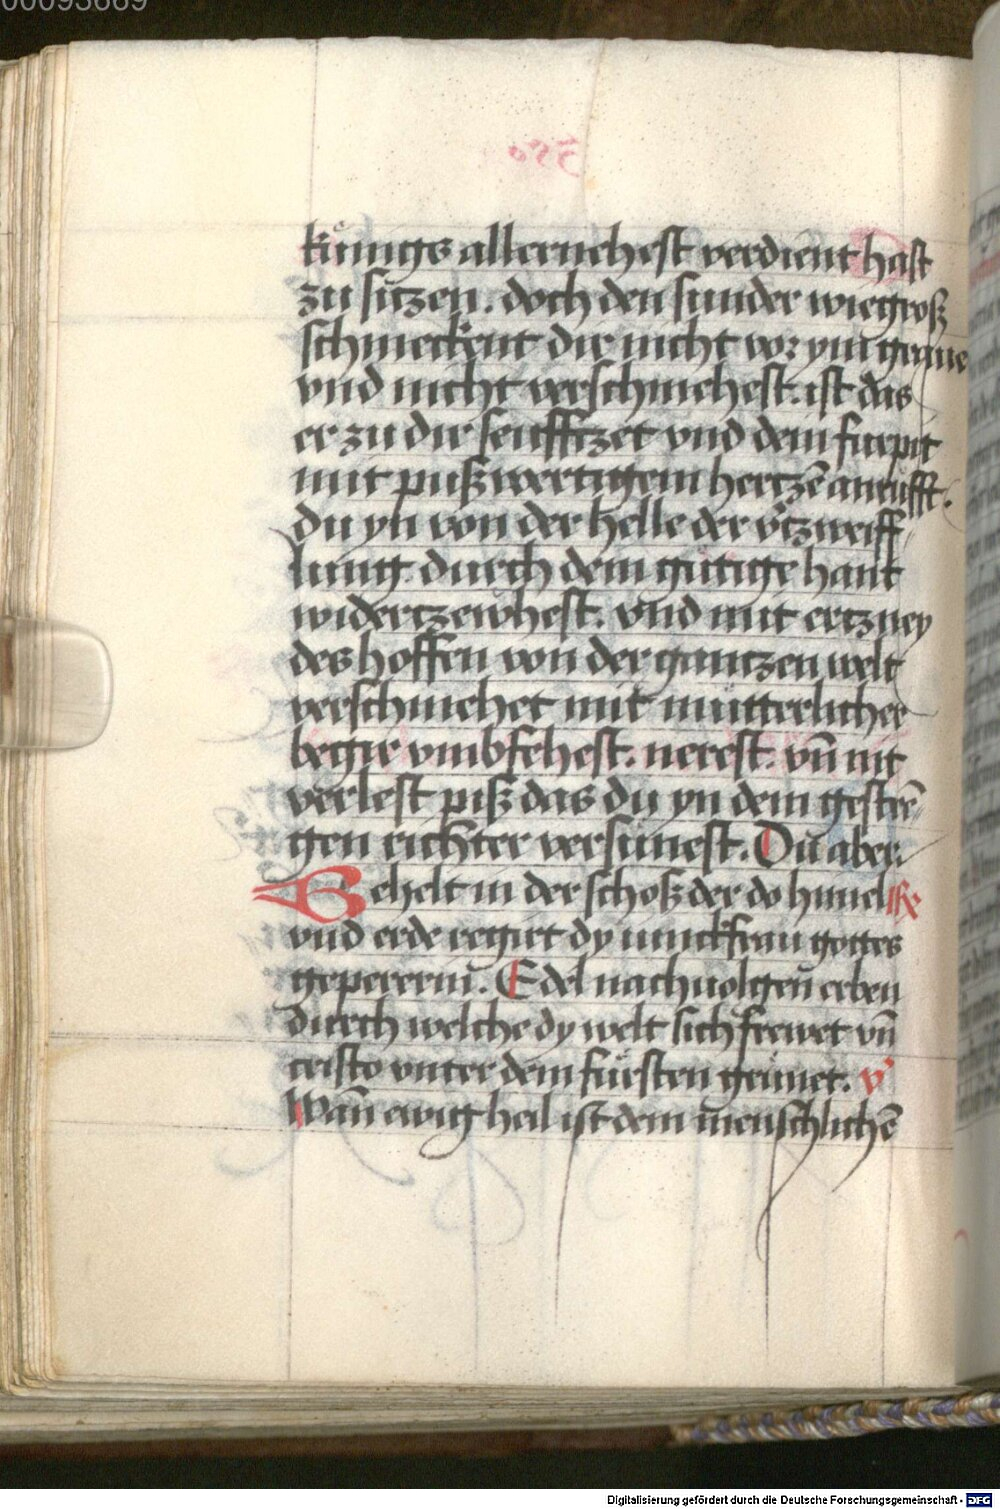 00093669
kůnigs allernehest verdient hast
zu siczen. doch den sunder wiegroß
schmeckent dir nicht vor ym grawe
vnd nicht verschmehest. ist das
er zu dir seufftzet vnd dem furpit
mit pußwertigem hertzē anrufft.
du yn von der helle der v̓tzweiff
lung durch dem gutige hant
widertzewhest. vnd mit ertzney
des hoffen von der gantzen welt
verschmehet mit mutterlicher
begir vmbfehest. nerest. vn̄ nit
verlest piß das du yn dem gestrē
gen richter versunest. Du aber.
Behelt in der schoß der do himel
vnd erde regirt dy iunckfrau gottes
gepererin. Edel nachuolgen̄ erben
durch welche dy welt sich frewet vn̄
cristo vnter dem fůrsten geeinet. v̓
Wan̄ ewig heil ist dem menschlichē
Digitalisierung gefördert durch die Deutsche Forschungsgemeinschaft - DFG